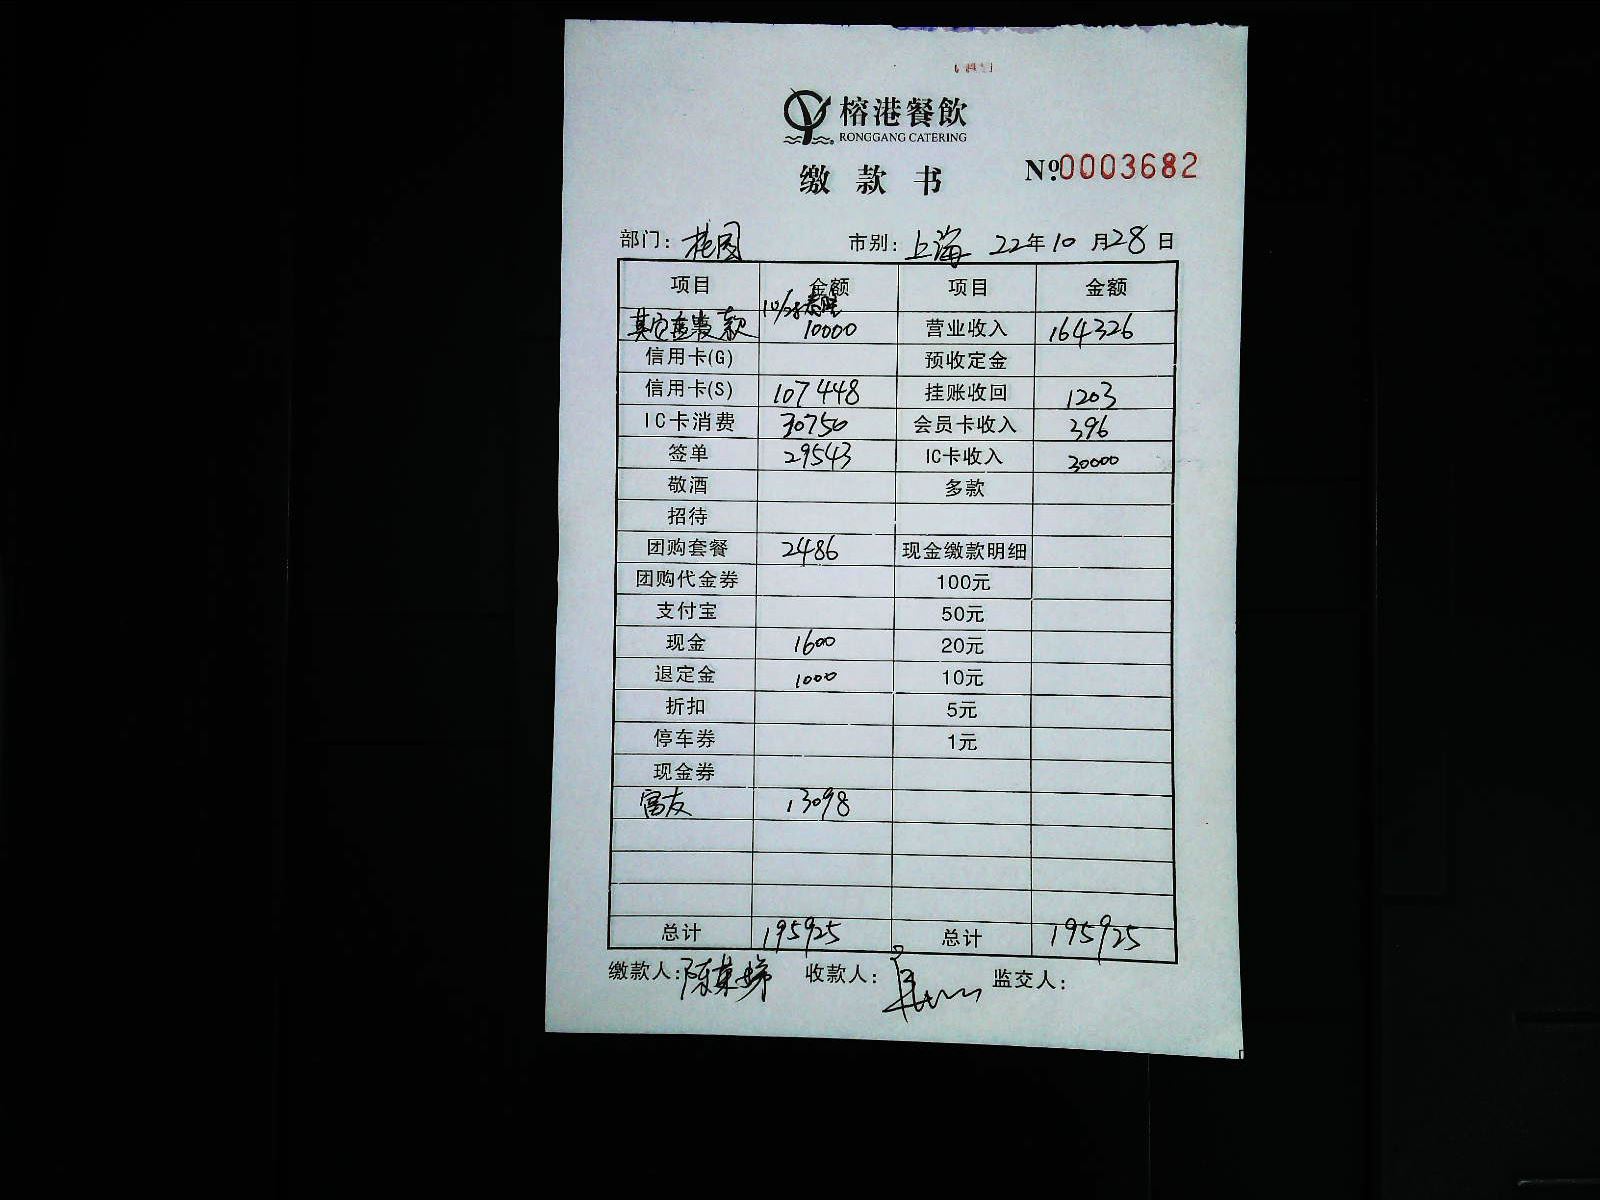 榕港餐飲
RONGGANG CATERING
缴款书
Nº.0003682
部门: 桂园 市别: 上海 22年10月28日
项目 金额 项目 金额
10/28
其它 款 10000 营业收入 164326
信用卡(G) 预收定金
信用卡(S) 107448 挂账收回 1203
IC卡消费 30750 会员卡收入 396
签单 29543 IC卡收入 30000
敬酒 多款
招待
团购套餐 2486 现金缴款明细
团购代金券 100元
支付宝 50元
现金 1600 20元
退定金 1000 10元
折扣 5元
停车券 1元
现金券
富友 13098
总计 195925 总计 195925
缴款人: 陈 娣 收款人: 监交人: